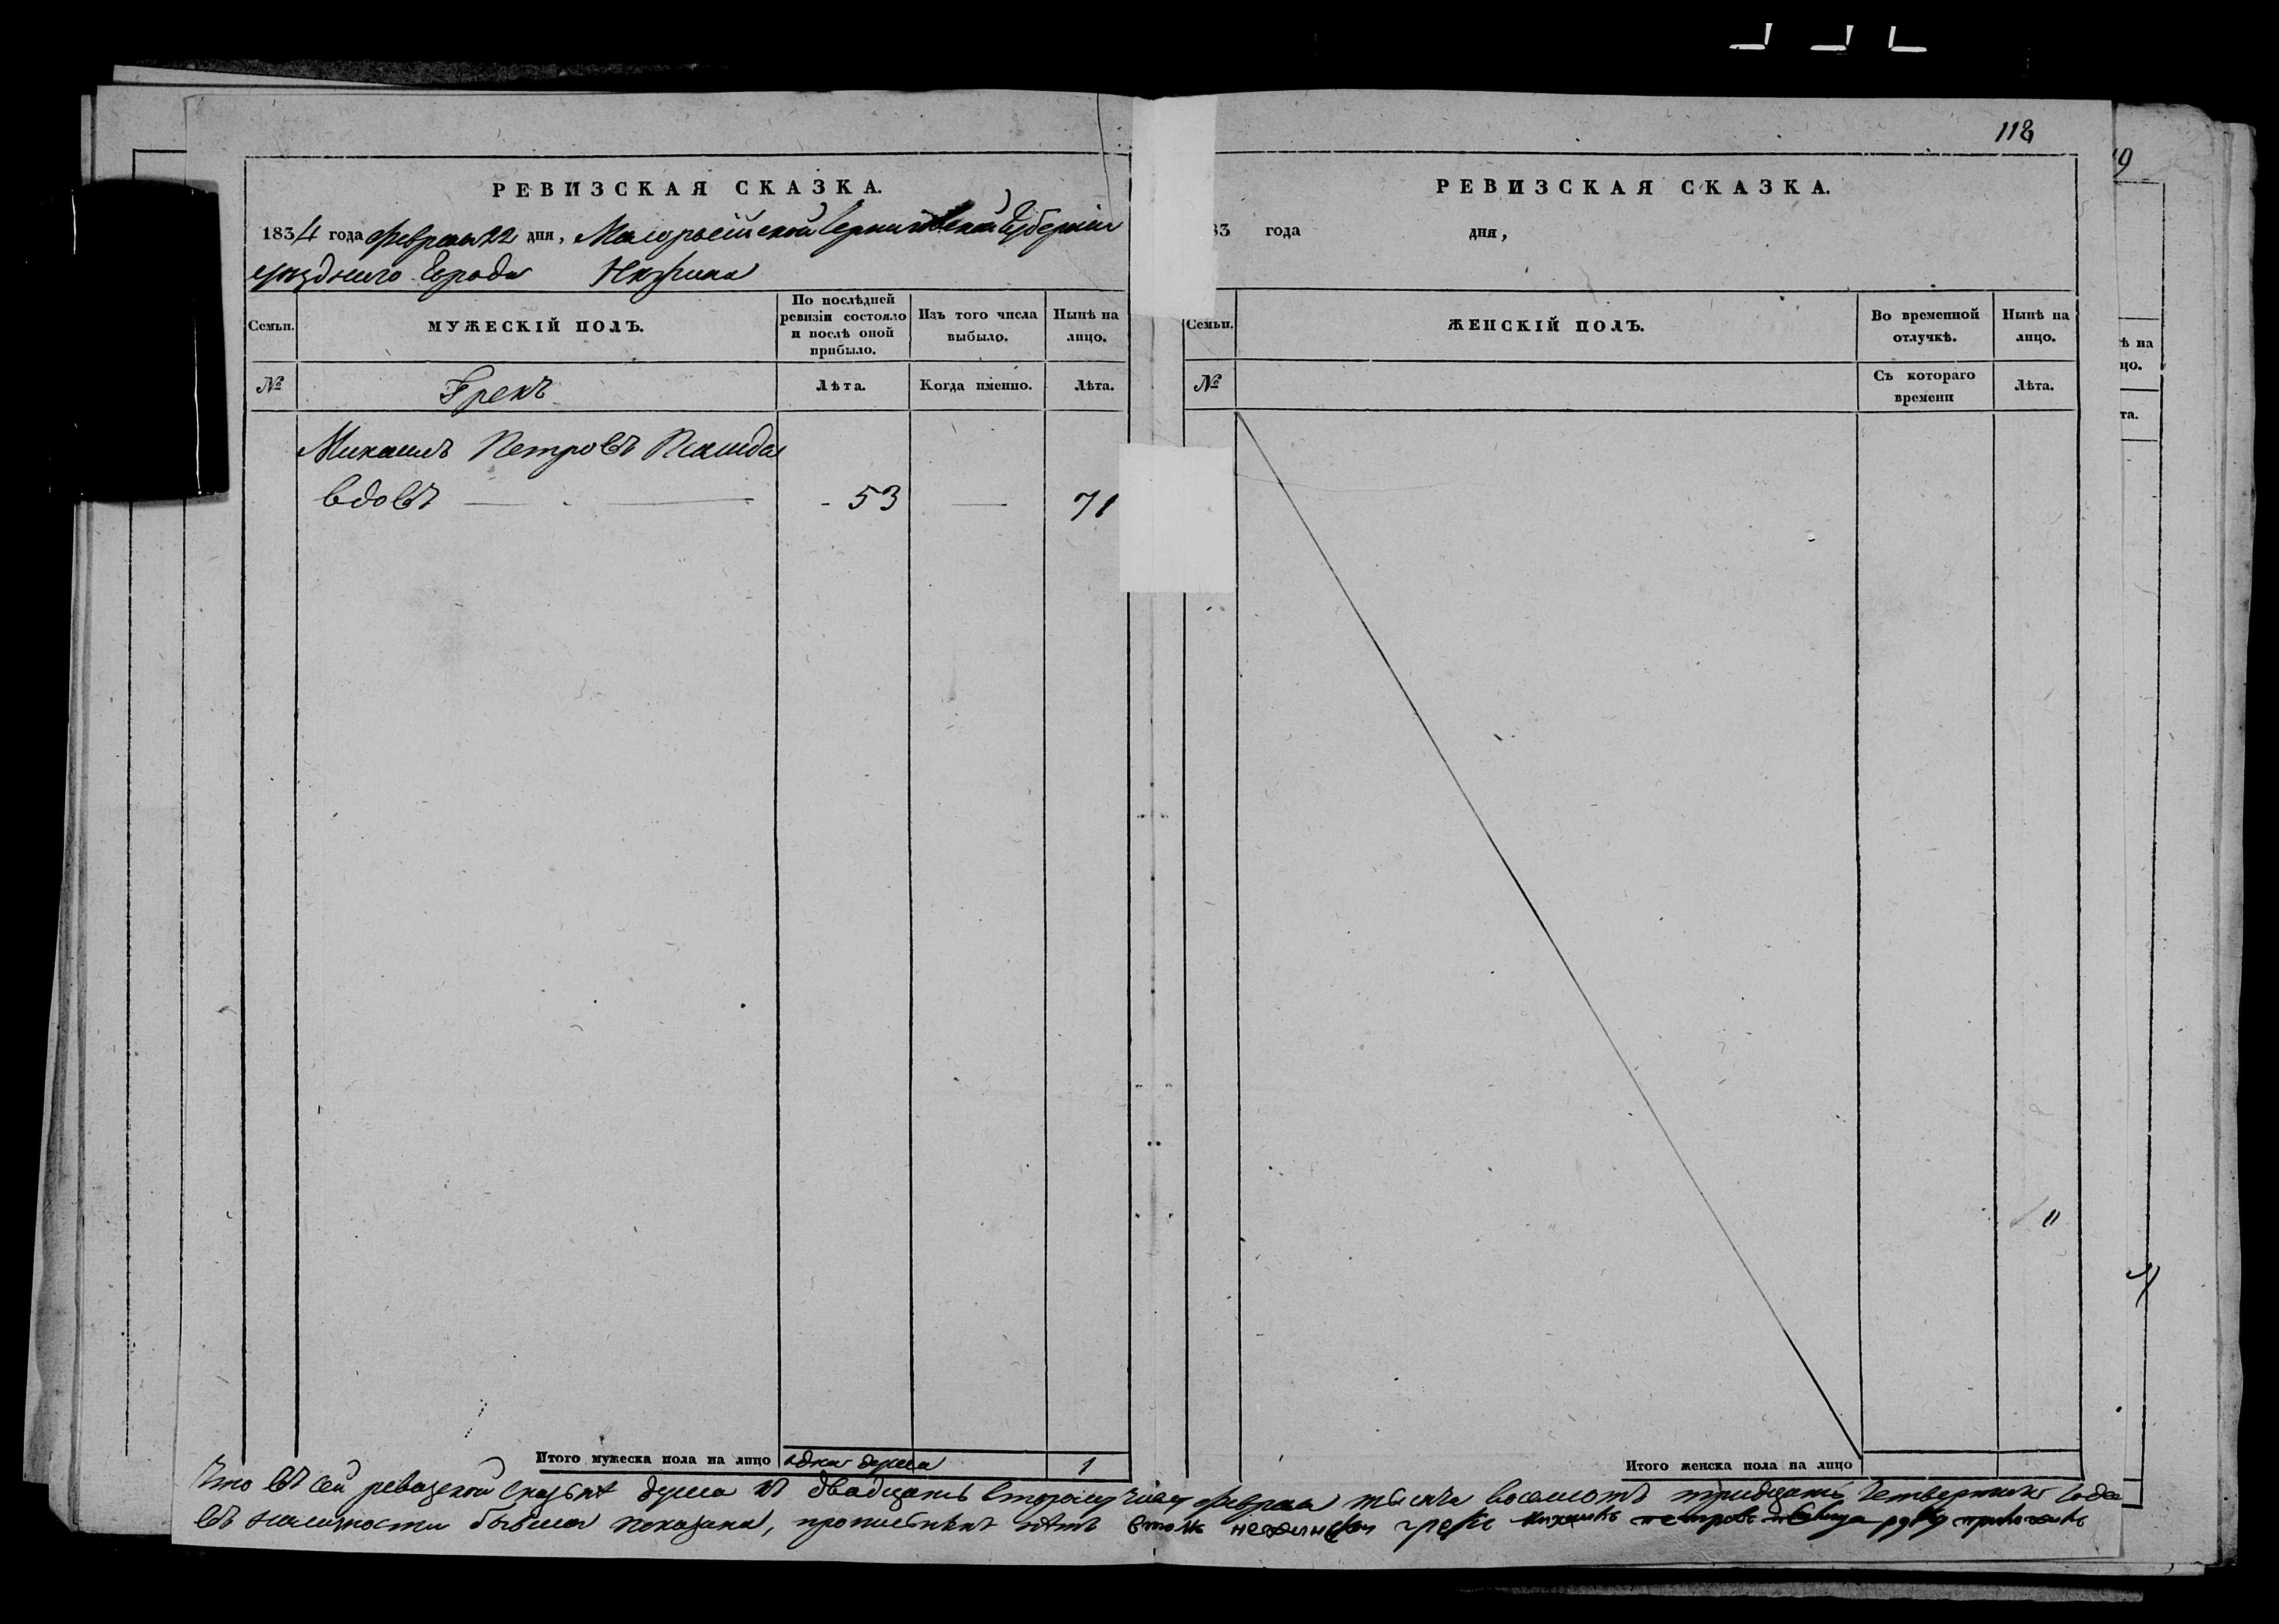 118
РЕВИЗСКАЯ СКАЗКА.
1834 года февраля 22 дня, Малороссійской Черниговской Губерніи
уезднаго Города Нѣжина
Семьи. МУЖЕСКІЙ ПОЛЪ. По послѣдней ревизіи состояло и послѣ оной прибыло. Изъ того числа выбыло. Нынѣ на лицо.
№ Грекъ Лѣта. Когда именно. Лѣта.
Михаилъ Петровъ
вдовъ - 53 71
Итого мужеска пола на лицо одна душа 1
РЕВИЗСКАЯ СКАЗКА.
83 года дня,
Семьи. ЖЕНСКІЙ ПОЛЪ. Во временной отлучкѣ. Нынѣ на лицо.
№ Съ котораго времени Лѣта.
"
Итого женска пола на лицо
Что въ сей ревизской сказкѣ душа къ двадцать второму числу февраля тысяча восемсотъ тридцать четвертого года
въ наличности была показана, нѣтъ грекъ михаилъ петровъ руку приложилъ
9
ѣ на
цо.
та.